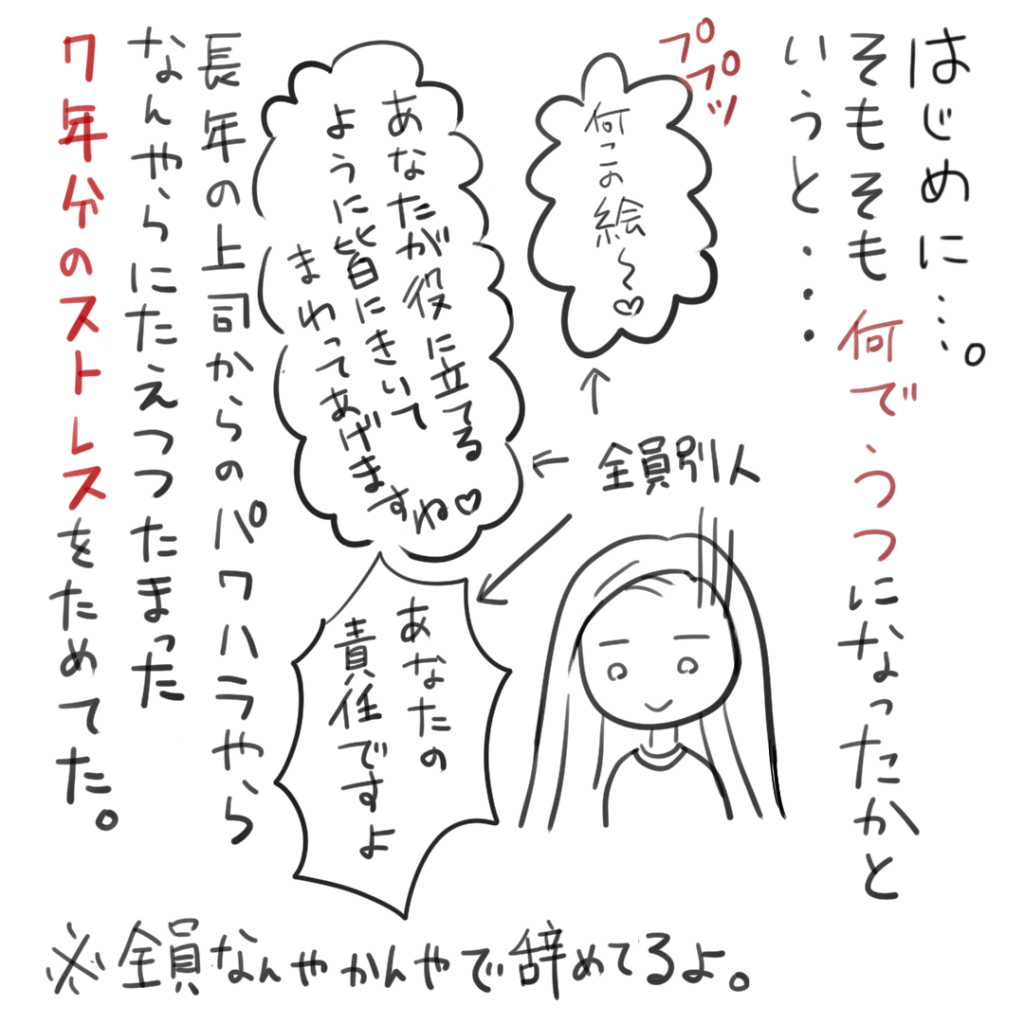 はじめに…。
そもそも何でうつになったかと
いうと・・・
ププッ
何この絵〜♡
あなたが役に立てる
ように皆にきいて
まわってあげますね♡
全員別人
あなたの
責任ですよ
長年の上司からのパワハラやら
なんやらにたえつつたまった
7年分のストレスをためてた。
※全員なんやかんやで辞めてるよ。